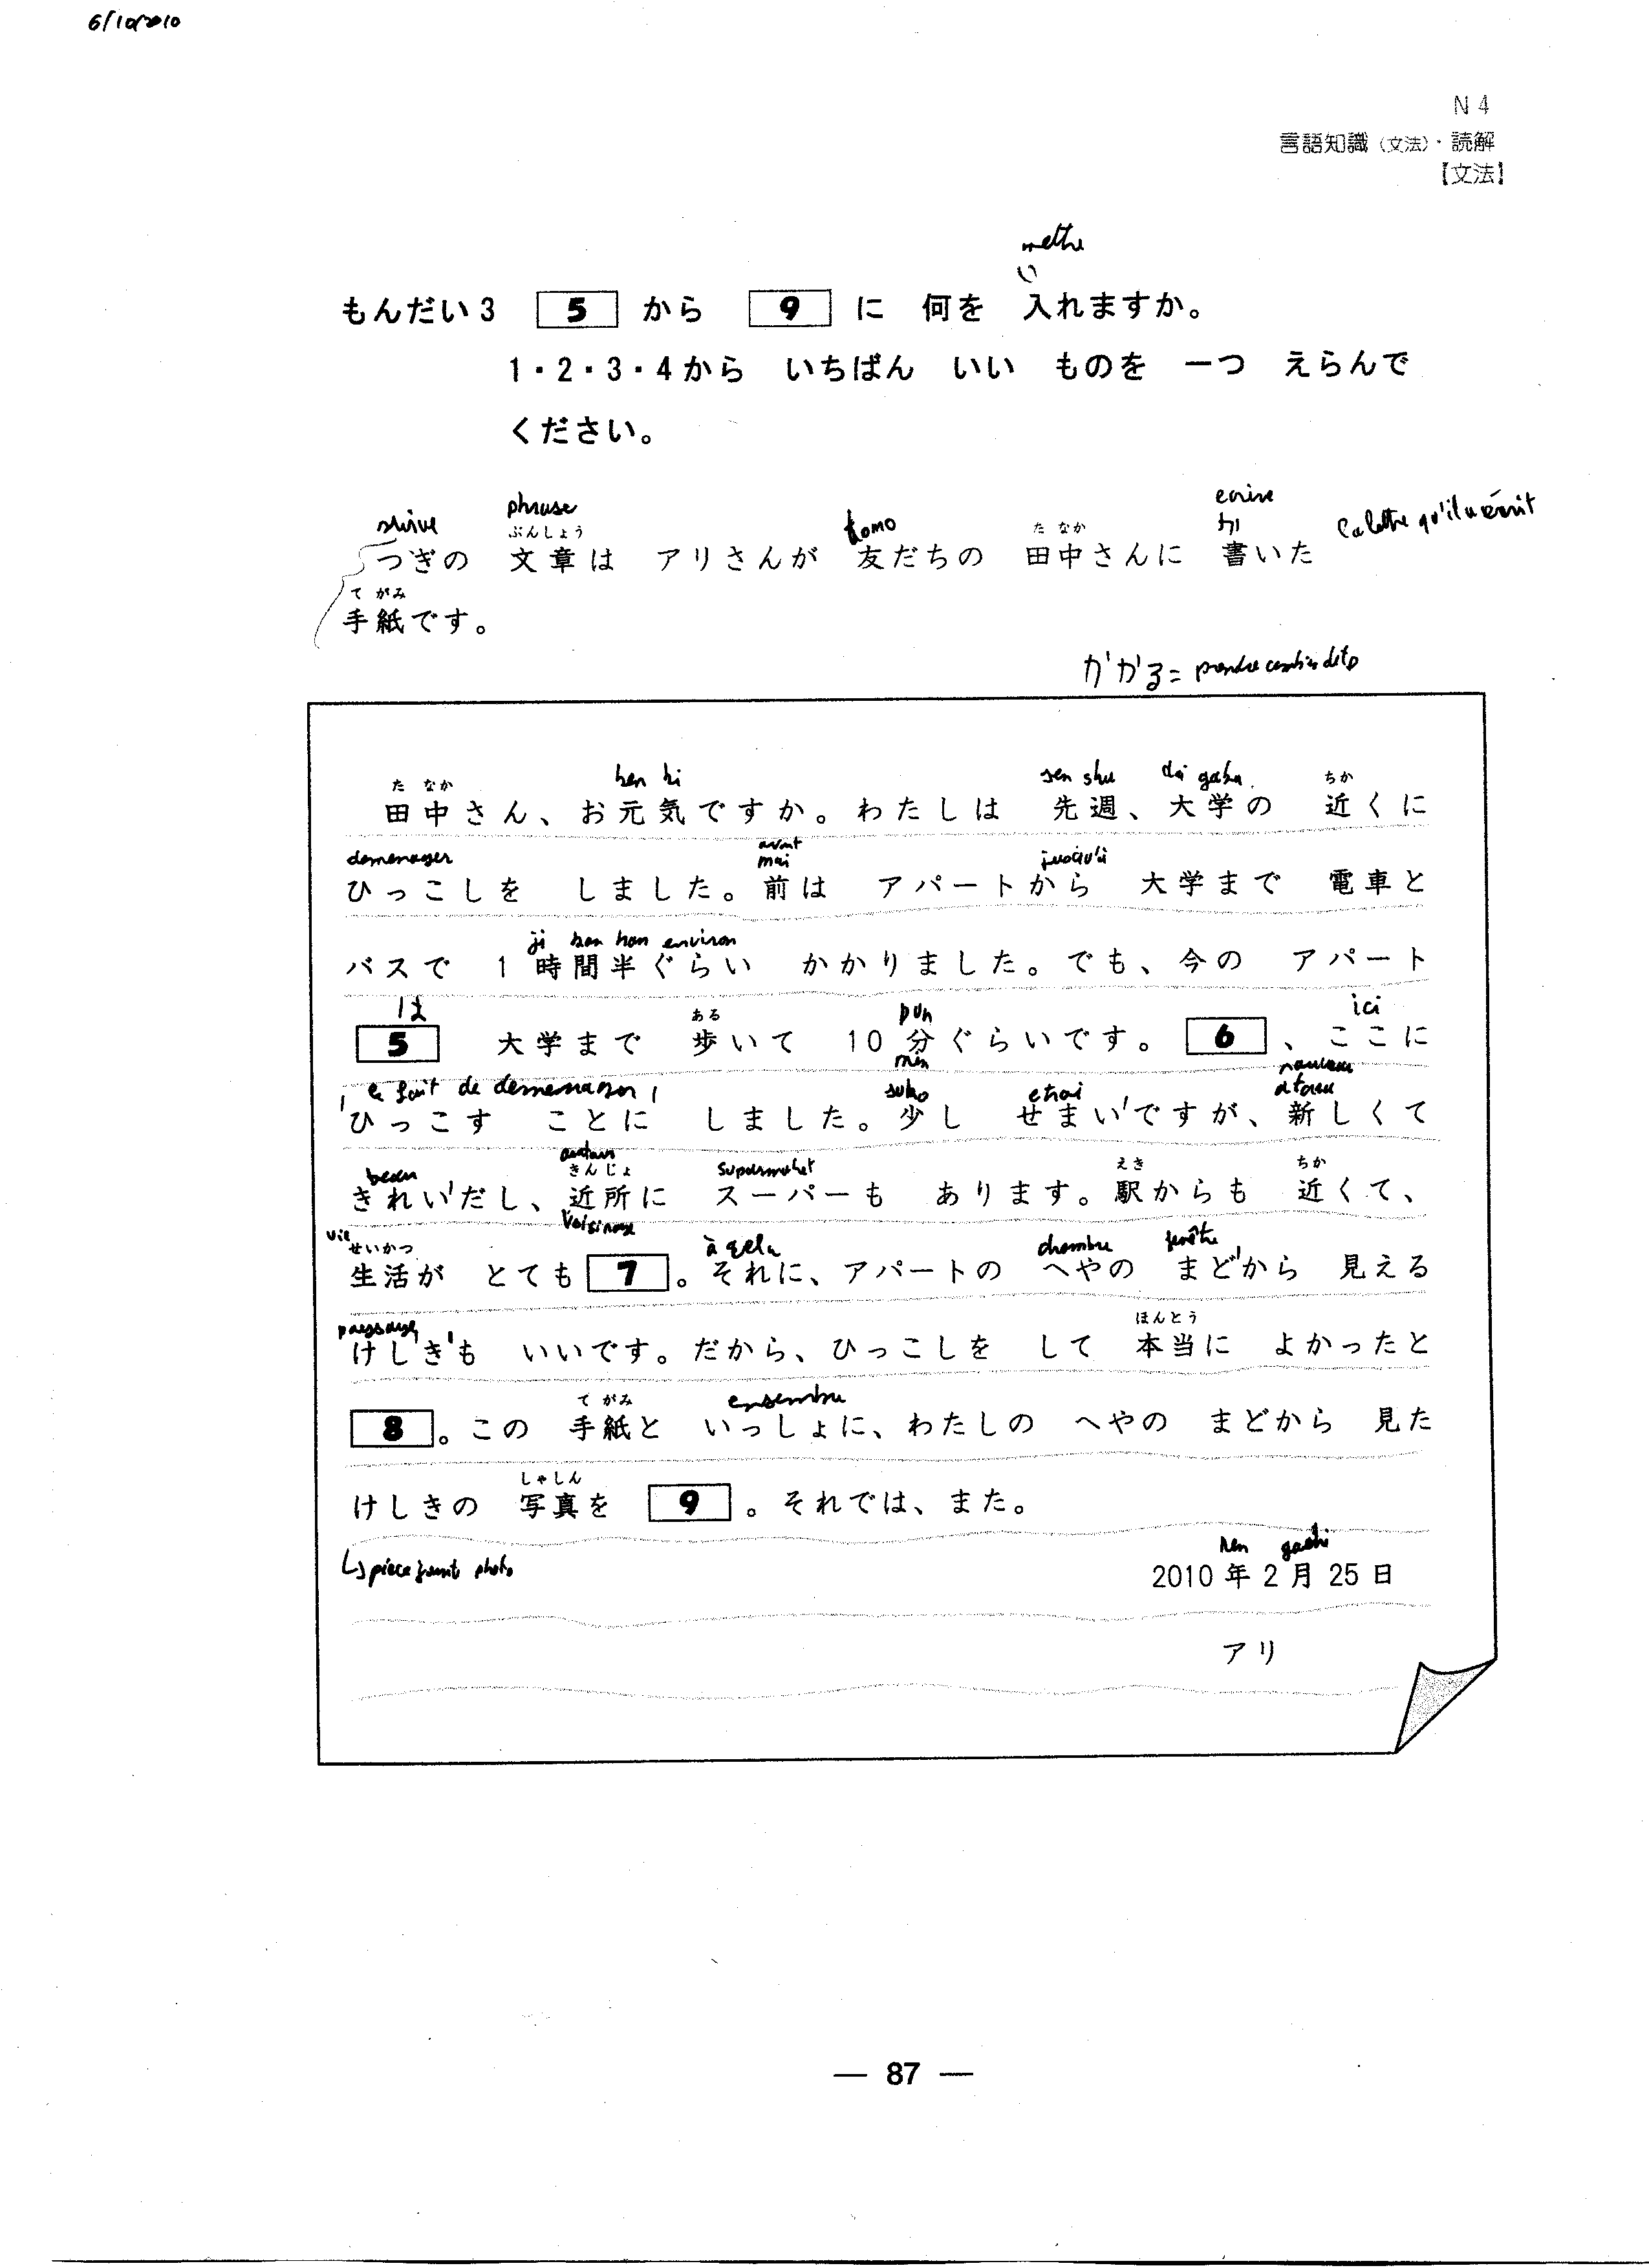 6/10/2010
N4
言語知識（文法）・読解
【文法】
mettre
い
もんだい3 5 から 9 に 何を 入れますか。
1・2・3・4から いちばん いい ものを 一つ えらんで
ください。
phrase écrire
suivre ぶんしょう tomo た なか か La lettre qu'il a écrit
つぎの 文章は アリさんが 友だちの 田中さんに 書いた
て がみ
手紙です。
かかる=
た なか gen ki sen shu dai gaku ちか
田中さん、お元気ですか。わたしは 先週、大学の 近くに
demenager avant mai jusqu'à
ひっこしを しました。前は アパートから 大学まで 電車と
ji kan han environ
バスで 1時間半ぐらい かかりました。でも、今の アパート
は ある pun ici
5 大学まで 歩いて 10分ぐらいです。6、ここに
min nouveau
le fait de demenager suko etroi atara
ひっこす ことに しました。少し せまいですが、新しくて
beau きんじょ supermarket えき ちか
きれいだし、近所に スーパーも あります。駅からも 近くて、
voisinage
vie せいかつ à cela chambre fenêtre
生活が とても 7。それに、アパートの へやの まどから 見える
paysage ほんとう
けしきも いいです。だから、ひっこしを して 本当に よかったと
て がみ ensemble
8。この 手紙と いっしょに、わたしの へやの まどから 見た
しゃしん
けしきの 写真を 9。それでは、また。
pièce jointe photo
nen gachi
2010年2月25日
アリ
— 87 —